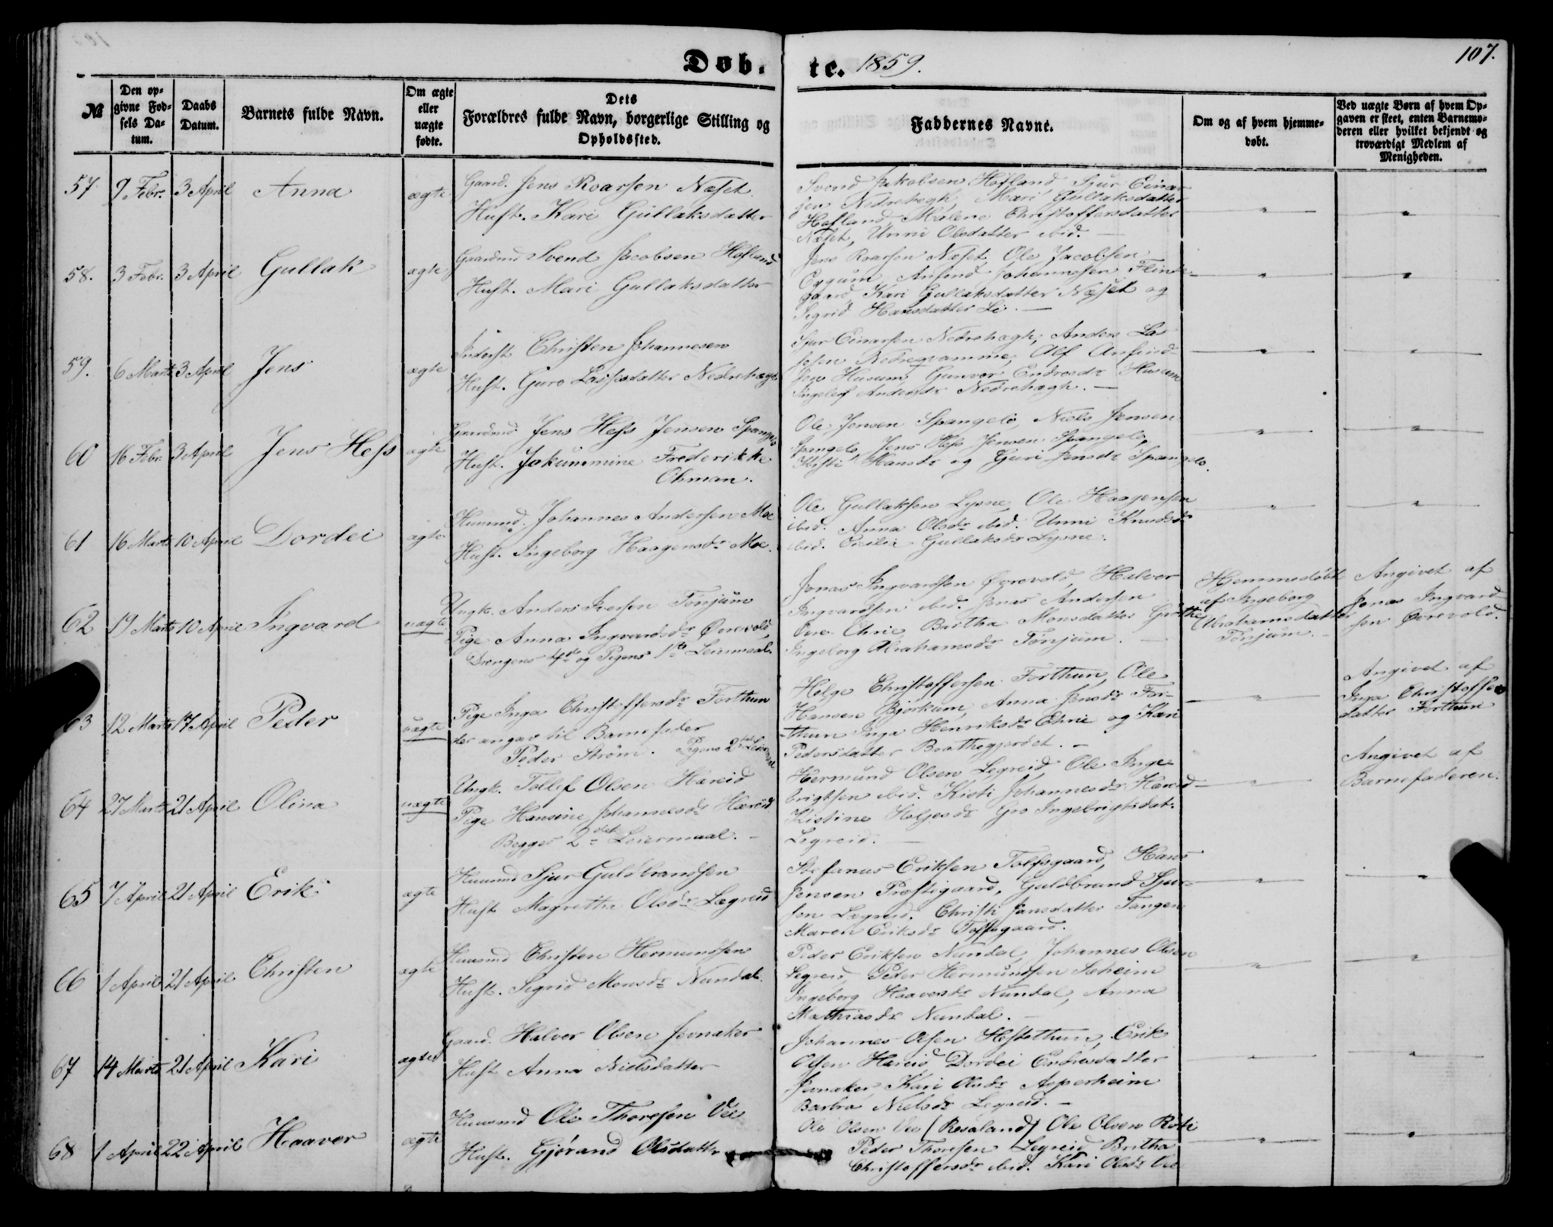 Döb- te. 1859. 107.
№
Den opgivne Fødsels Datum.
Daabs Datum.
Barnets fulde Navn.
Om ægte eller uægte fødte.
Dets Forældres fulde Navn, borgerlige Stilling og Opholdssted.
Faddernes Navne.
Om og af hvem hjemmedøbt.
Ved uægte Børn af hvem Opgaven er skeet, enten Barnemoderen eller hvilket bekjendt og troværdigt Medlem af Menigheden.
57 9 Febr. 3 April Anna ægte
Gaard. Jens Roarsen Næset
Hust. Kari Gullaksdatter
Svend Jakobsen Hofland, Sjur Einar-
sen Nedrehagh, Mari Gullaksdatter
Hofland, Malene Christoffersdatter
Næset, Unni Olsdatter ibid. —
58. 3 Febr. 3 April Gullak ægte
Gaardmd Svend Jacobsen Hofland
Hust. Mari Gullaksdatter
Jens Roarsen Næset, Ole Jacobsen
Johannesen
Kari Gullaksdatter Næset og
Sigrid Hansdatter Li. —
59. 6 Marts 3 April Jens ægte
Inderst Christen Johannesen
Hust. Guro Lassesdatter Nedrehagh
Sjur Einarsen Nedrehagh, Anders La-
Husum, Gunvor Endresdr Husum
Ingeleif Andersdr Nedrehagh. —
60 16 Febr. 3 April Jens Hess ægte
Gaardmd. Jens Hess Jensen Spangelo
Hust. Jakummine Frederikke
Ohman.
Ole Jensen Spangelo, Niels Jensen
Spangelo, Jens Hess Jensen Spangelo,
Hansdr og Guri Jensdr Spangelo.
61 16 Marts 10 April Dordei ægte
Huusmd. Johannes Andersen Moe
Hust. Ingeborg Haagensdr Moe.
Ole Gullaksen Lysne, Ole Haagensen
ibid. Anna Olsdr ibid. Unni Knudsdr
ibid. Gullaksdr Lysne.
62 19 Marts 10 April Ingvard uægte
Ungk. Anders Iversen Tønjum
Pige Anna Ingvardsdr Ørevold,
Drengens 4de og Pigens 1ste Leiermaal.
Jonas Ingvardsen Ørevold, Halvor
Ingvardsen ibid. Jonas Andersen
Øvre Eirie, Birtha Monsdatter
Ingeborg Abrahamsdr Tønjum. —
Hjemmedöbt
af Ingeborg
Abrahamsdatter
Tønjum. —
Angivet af
Jonas Ingvard-
sen Ørevold.
63 12 Marts 17 April Peder uægte
Pige Inga Christoffersdr Forthun
der angav til Barnefader
Peder Strøm. Pigens 2det Leiermaal
Helge Christoffersen Forthun, Ole
Hansen Bjørkum, Anna Jensdr For-
thun Inga Henriksdr Eirie og Kari
Pedersdatter Brattegjerdet. —
Angivet af
Inga Christoffers-
datter Forthun
64 27 Marts 21 April Olina uægte
Ungk. Tollef Olsen Hæreid
Pige Hansine Johannesdr Hæreid
Begges 2det Leiermaal. —
Hermund Olsen Legreid Ole Inge-
brigtsen ibid. Kisti Johannesdr Hæreid
Kistine Helgesdr Gro Ingebrigtsdatr
Legreid. —
Angivet af
Barnefaderen.
65 7 April 21 April Erik ægte
Huusmd Sjur Guldbrandsen
Hust Magrethe Olsdr Lægreid
Stefanus Eriksen Toftsgaard, Hans
Jensen Prestegaard, Guldbrand Sjur-
sen Legreid, Christi Jansdatter Tangen
Maren Eriksdr Toftsgaard.
66 1 April 21 April Christen ægte
Huusmd Christen Hermundsen
Hust. Sigrid Monsdr Nundal.
Peder Eriksen Nundal, Johannes Olsen
Legreid, Peder Hermundsen Seheim
Ingeborg Haaversdr Nundal, Anna
Mathiasdr Nundal. —
67 14 Marts 21 April Kari ægte
Gaard. Halvor Olsen Jernaker
Hust Anna Nielsdatter
Johannes Olsen Hestethun, Erik
Olsen Hæreid Dordei Endresdatter
Jernaker Kari Olsdr Asperheim
Barbra Nielsdr Legreid. —
68 1 April 22 April Haaver ægte
Huusmd Ole Thoresen Vee
Hust. Gjørand Olsdatter
Ole Olsen Vee (Rosaland) Ole Olsen
Peder Thoresen Legreid Brita
Christoffersdr ibid. Kari Olsdr Vee